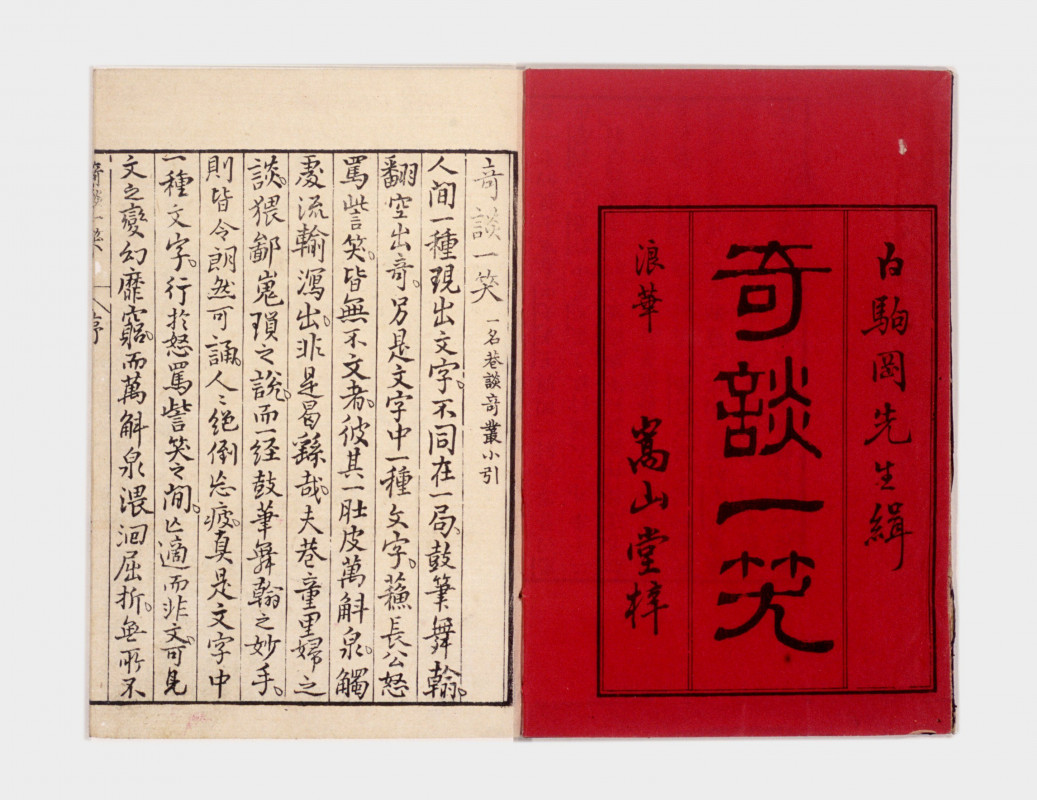 白駒岡先生緝
奇談一笑
浪華　嵩山堂梓
奇談一笑 一名巷談奇叢小引
人间一種現出文字。不同在一局。鼓筆舞翰。
翻空出奇。另是文字中一種文字。蘓長公怒
罵訾笑。皆無不文者。彼其一肚皮萬斛泉。觸
處流輸瀉出。非是曷繇哉。夫巷童里婦之
談。猥鄙嵬瑣之說。而一経鼓華舞翰之妙手。
則皆令朗然可誦。人〻絕倒忘疲。真是文字中
一種文字。行於怒罵訾笑之间。亾適而非文。可見
文之變幻靡窮。而萬斛泉渨洄屈折。無所不
奇談一笑　序